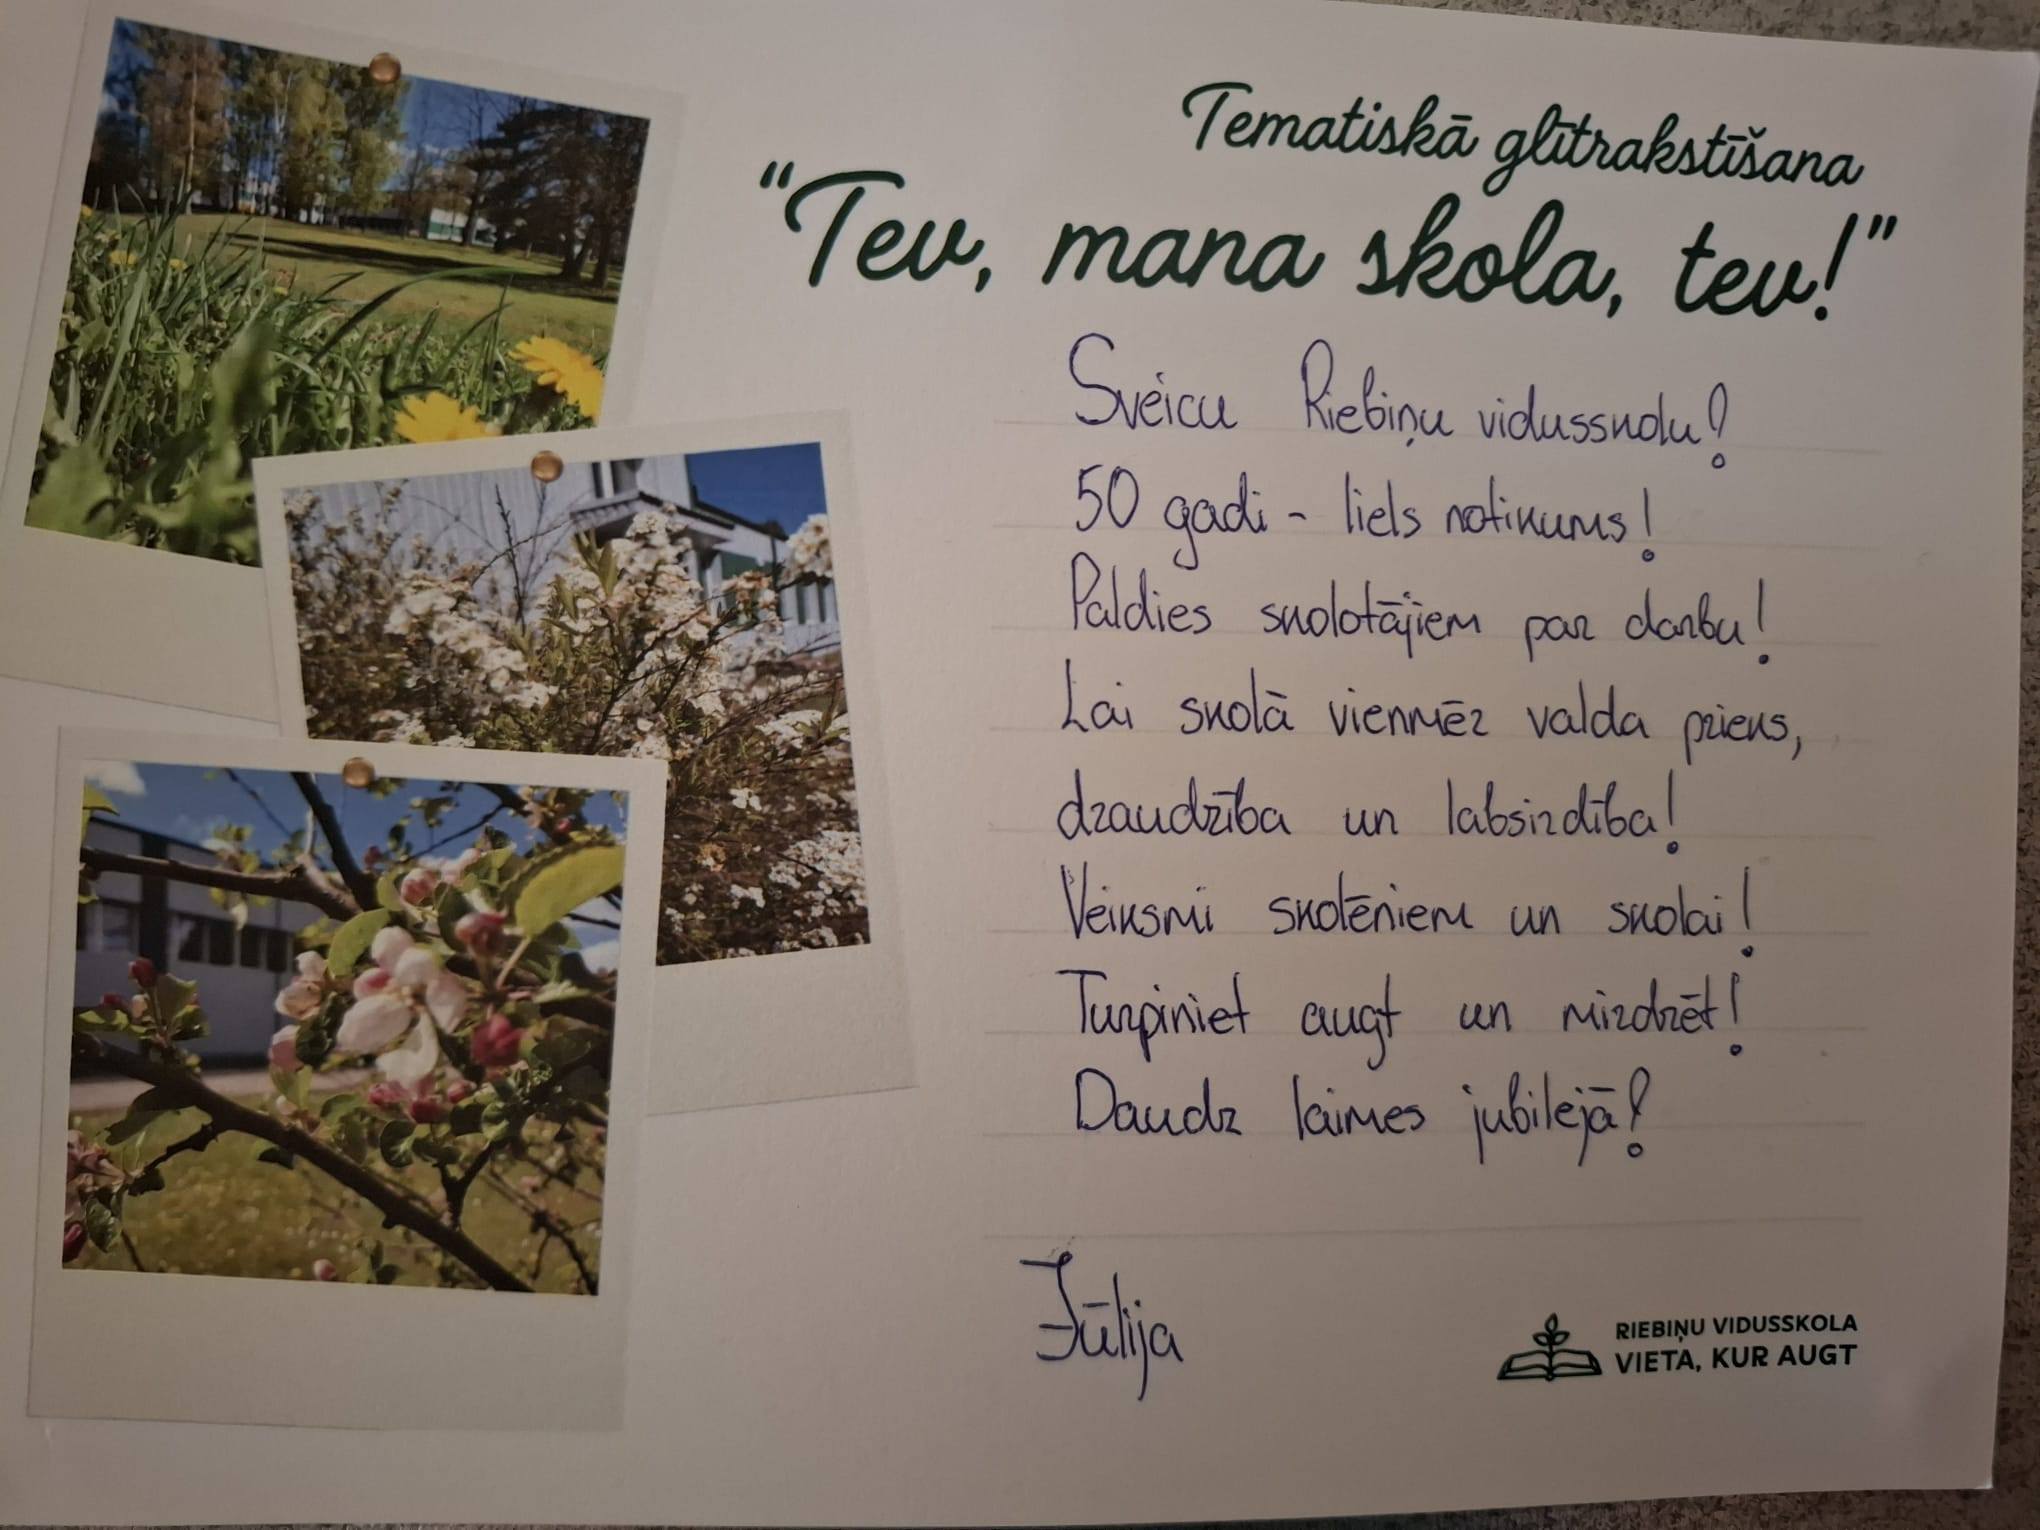 Tematiskā glītrakstīšana
“Tev, mana skola, tev!”
Sveicu Riebiņu vidusskolu!
50 gadi - liels notikums!
Paldies skolotājiem par darbu!
Lai skolā vienmēr valda prieks,
draudzība un labsirdība!
Veiksmi skolēniem un skolai!
Turpiniet augt un mirdzēt!
Daudz laimes jubilejā!
Jūlija
RIEBIŅU VIDUSSKOLA
VIETA, KUR AUGT